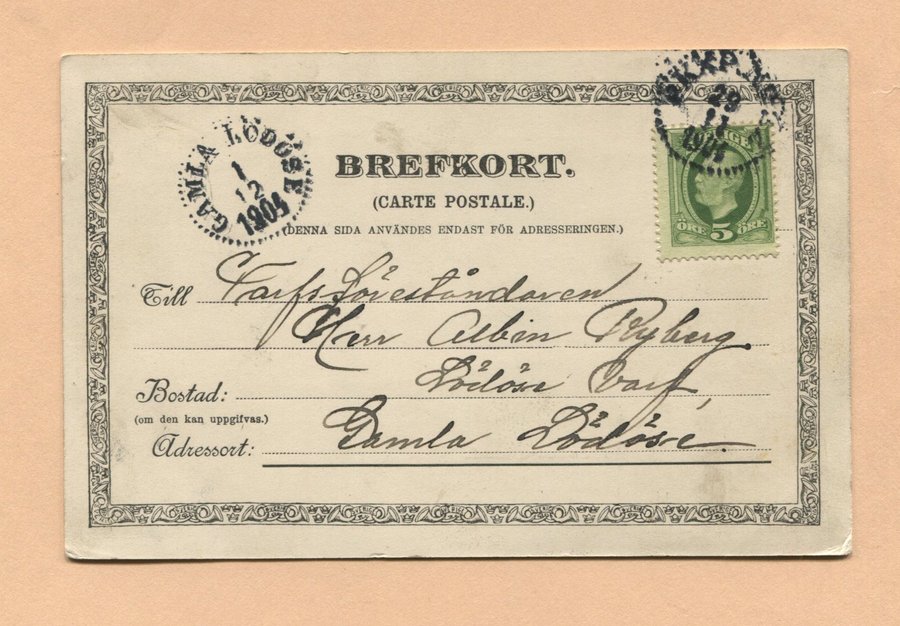 GAMLA LÖDÖSE
1
12
1904
PKXP.N
29
11
1904
SVERIGE
ÖRE 5 ÖRE
BREFKORT.
(CARTE POSTALE.)
(DENNA SIDA ANVÄNDES ENDAST FÖR ADRESSERINGEN.)
Till Varfsföreståndaren
Herr Albin Ryberg
Lödöse Varf,
Bostad:
(om den kan uppgifvas.)
Adressort: Gamla Lödöse